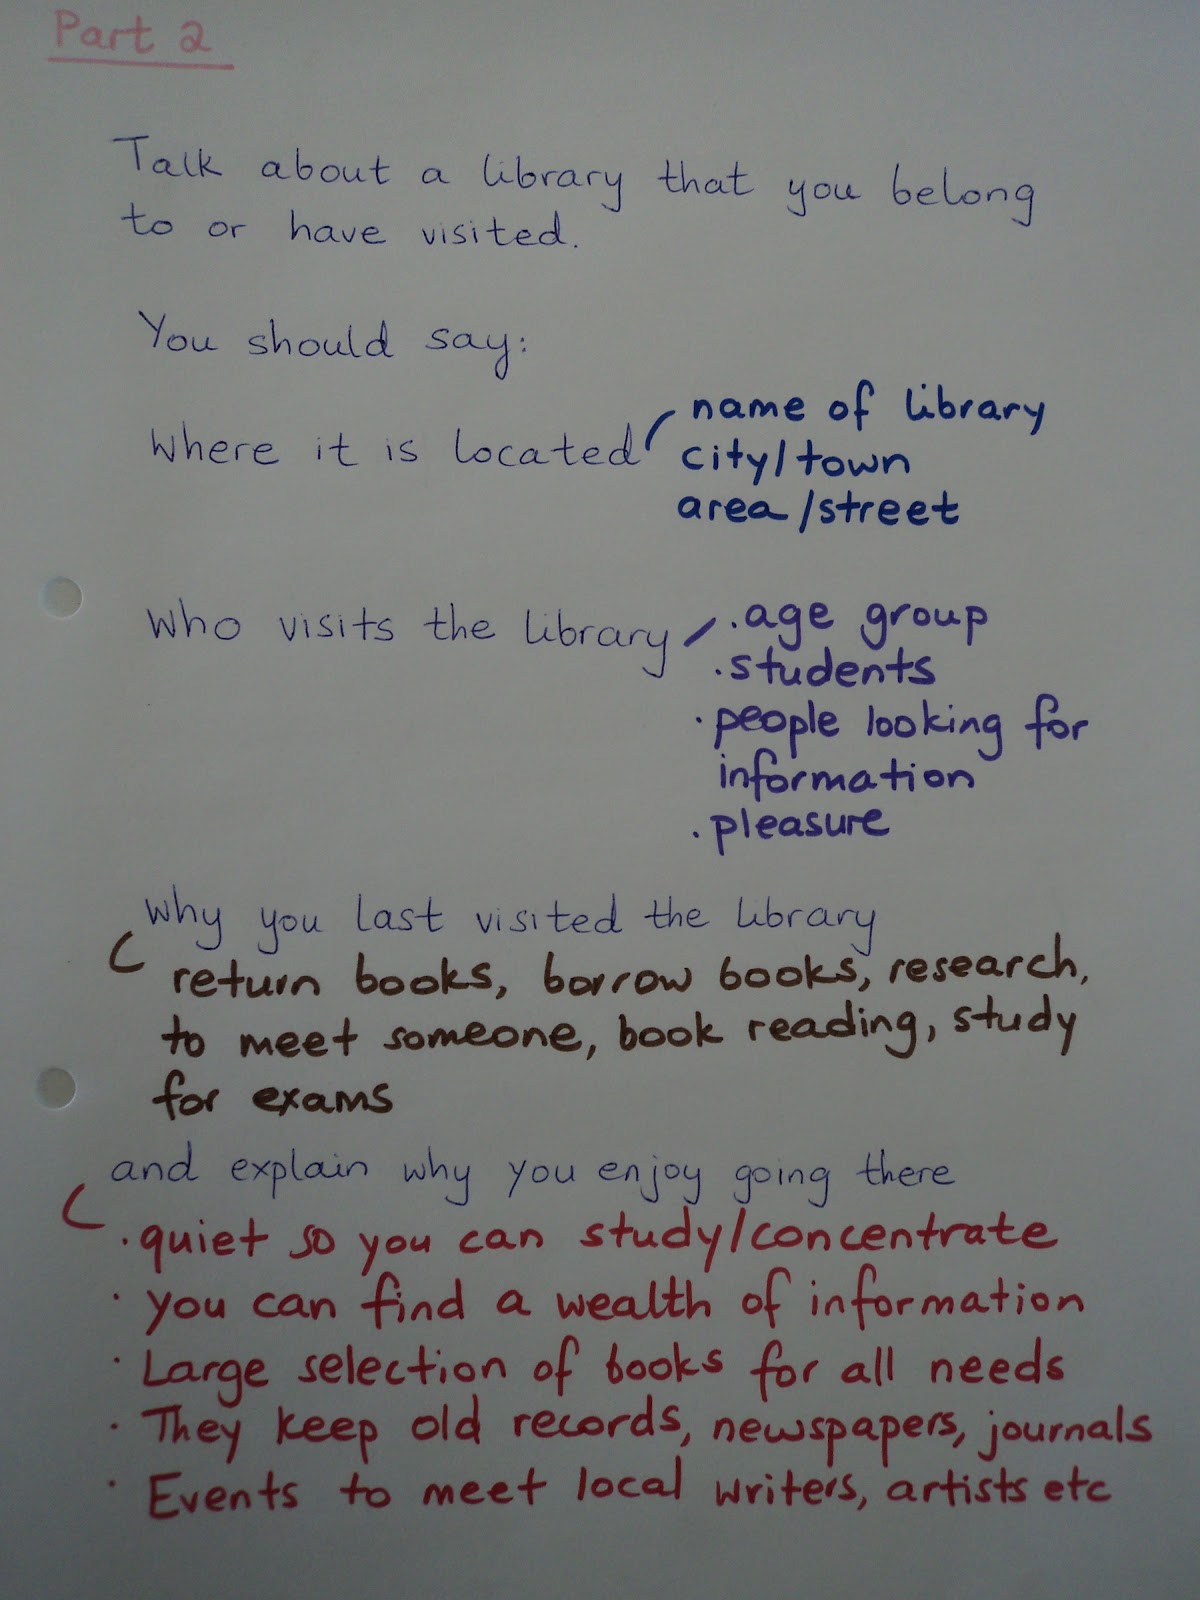 Part 2
Talk about a library that you belong
to or have visited.
You should say:
Where it is located
name of library
city/town
area/street
Who visits the library
. age group
. students
. people looking for
information
. pleasure
why you last visited the library
return books, borrow books, research,
to meet someone, book reading, study
for exams
and explain why you enjoy going there
. quiet so you can study/concentrate
. you can find a wealth of information
. Large selection of books for all needs
. They keep old records, newspapers, journals
. Events to meet local writers, artists etc